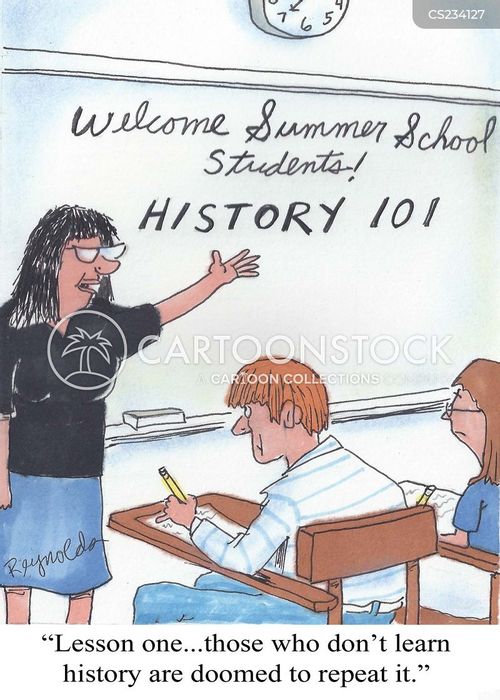 CS234127
4
7
6
5
Welcome Summer School
Students!
HISTORY 101
CARTOONSTOCK
CARTOON COLLECTIONS
Reynolds
“Lesson one...those who don’t learn
history are doomed to repeat it.”